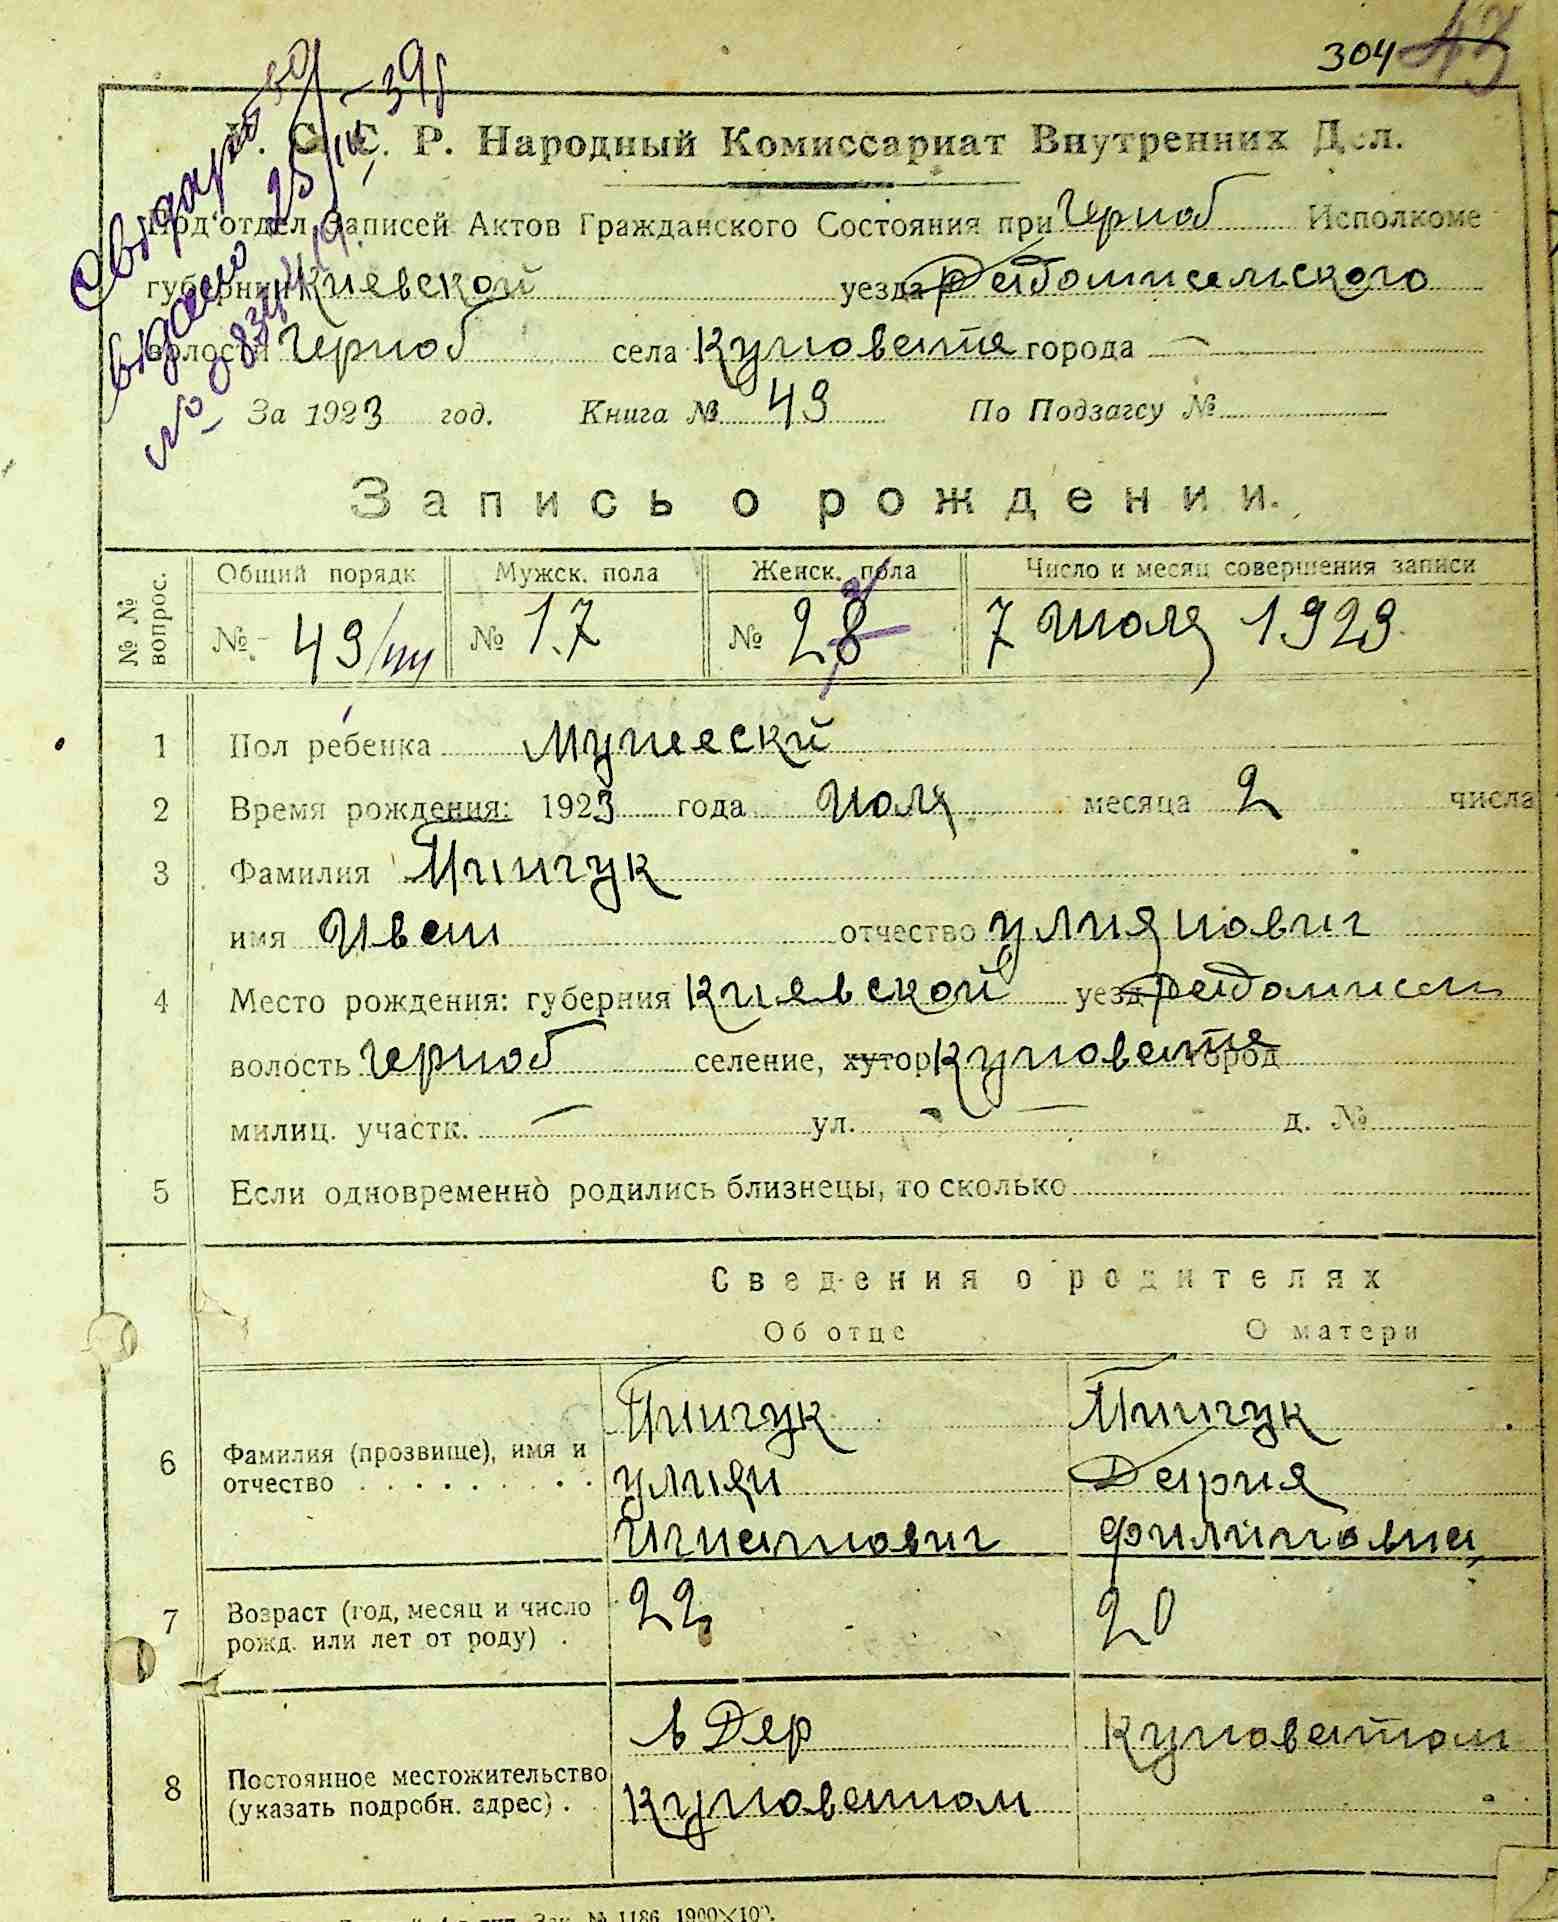 304 43
У. С. С. Р. Народный Комиссариат Внутренних Дел.
Под'отдел Записей Актов Гражданского Состояния при Черноб Исполкоме
губернии Киевской уезда Радомисельского
волости Черноб села города —
За 1923 год. Книга № 49 По Подзагсу №
Запись о рождении.
№ № вопрос. Общий порядк Мужск. пола Женск. пола Число и месяц совершения записи
№ 49/ № 17 № 28 7 июля 1923
1 Пол ребенка Мужески
2 Время рождения: 1923 года июля месяца 2 числа
3 Фамилия Пинчук
имя Иван отчество Улиянович
4 Место рождения: губерния Киевской уезд Радомисел
волость Черноб селение, хутор город
милиц. участк. — ул. — д. №
5 Если одновременно родились близнецы, то сколько
Сведения о родителях
Об отце О матери
Пинчук Пинчук
6 Фамилия (прозвище), имя и
отчество . . . . . . . . .
Улиян Дария
Игнатович Филиповна
7 Возраст (год, месяц и число
рожд. или лет от роду) .
22 20
в Дер
8 Постоянное местожительство
(указать подробн. адрес) .
Зак. № 1186 1900×100.